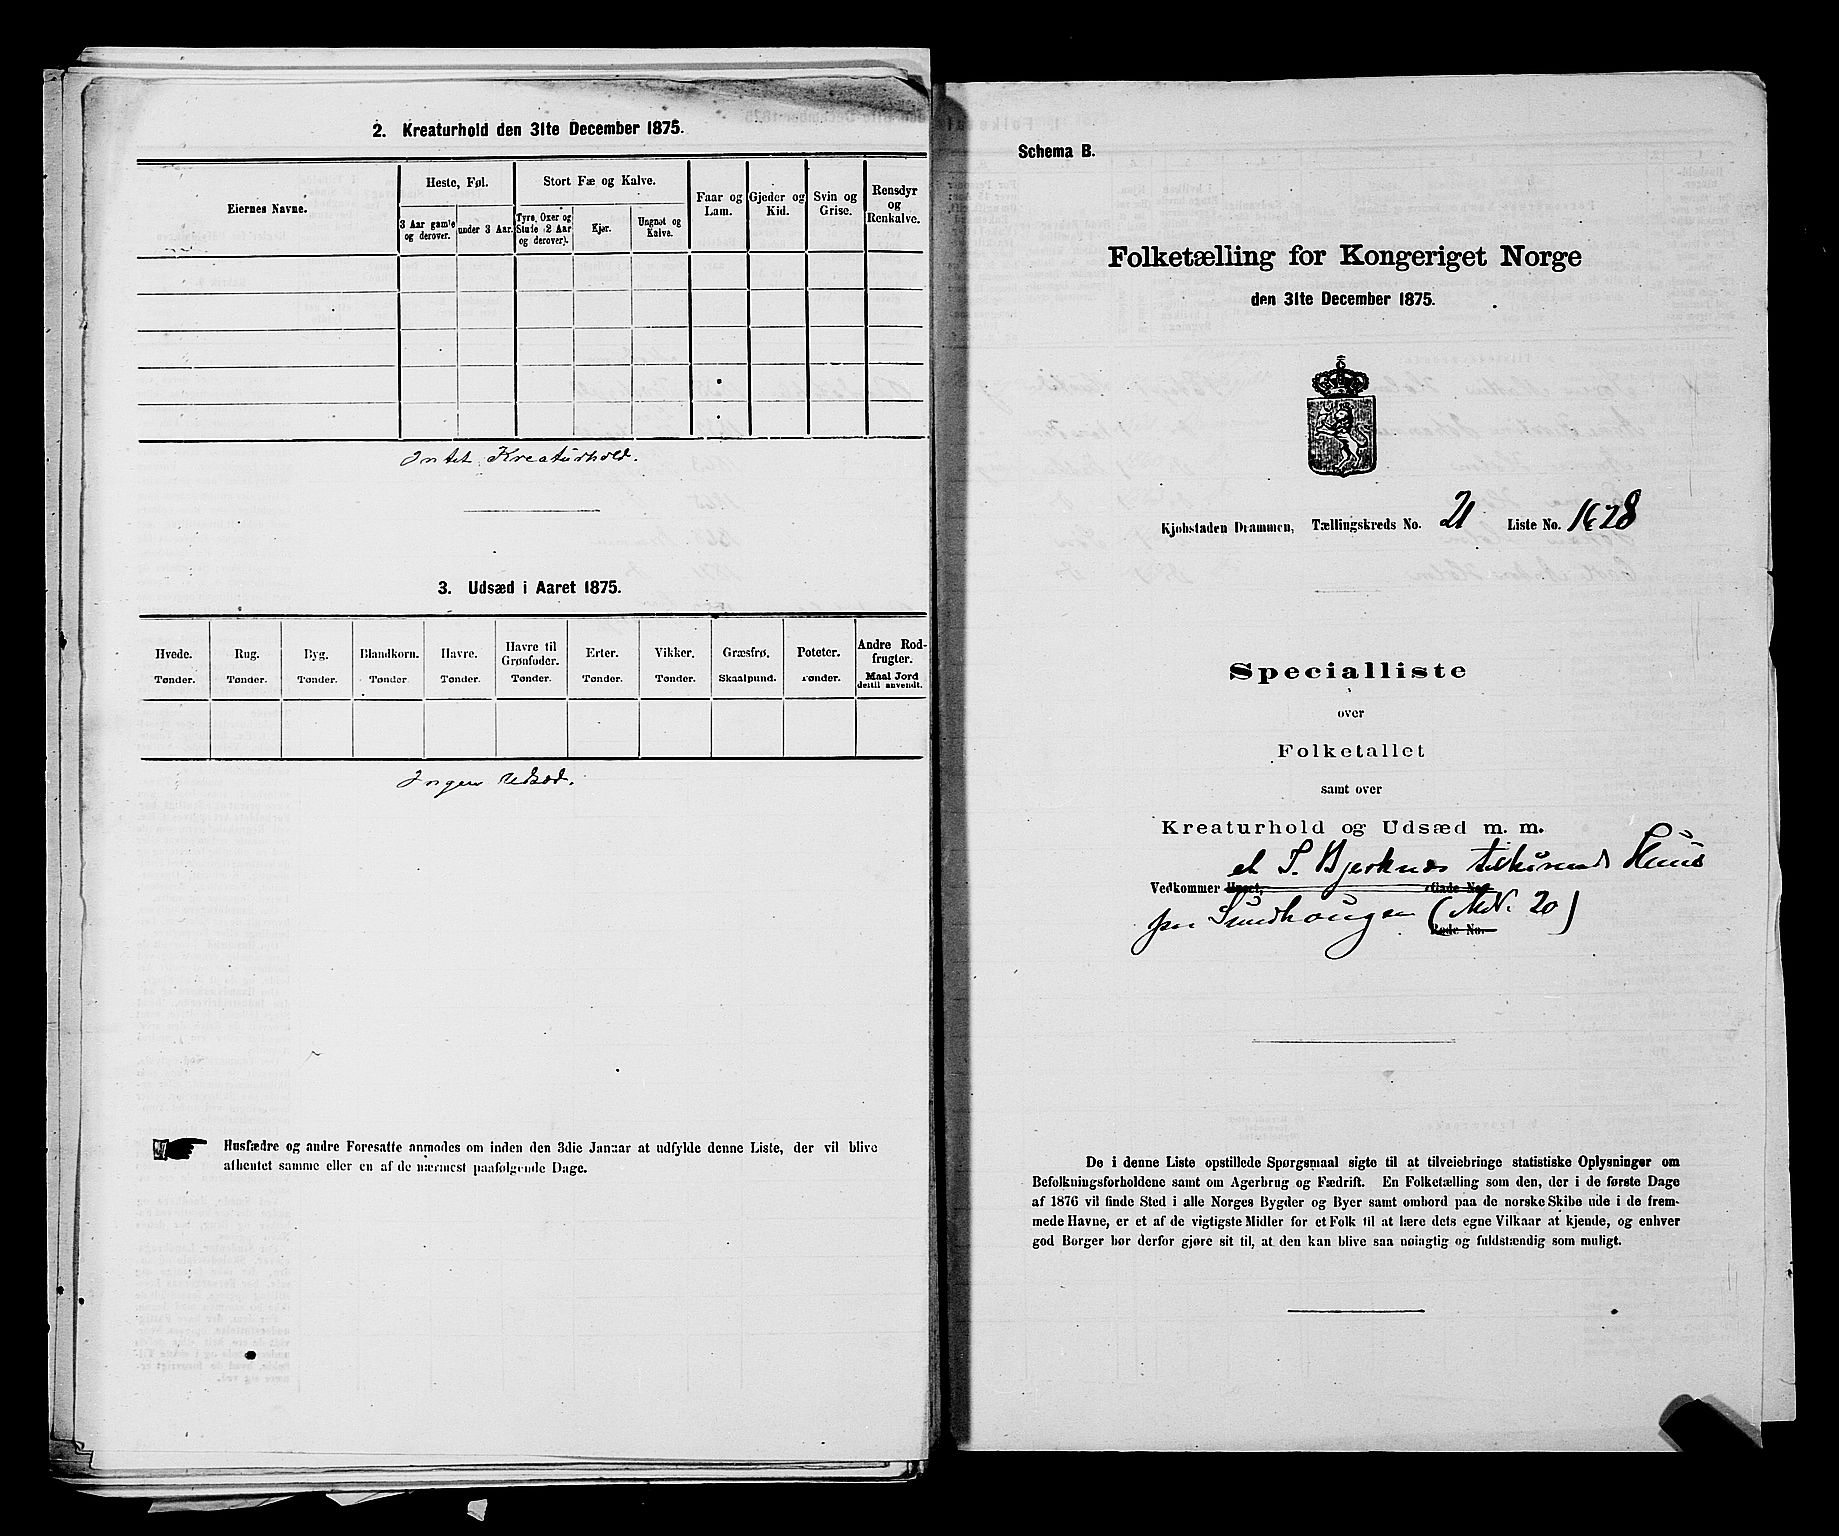 2. Kreaturhold den 31te December 1875.
Eiernes Navne.
Heste, Føl.
Stort Fæ og Kalve.
3 Aar gamle og derover.
under 3 Aar.
Tyre, Oxer og Stude (2 Aar og derover).
Kjør.
Ungnøt og Kalve.
Faar og Lam.
Gjeder og Kid.
Svin og Grise.
Rensdyr og Renkalve.
Intet Kreaturhold.
3. Udsæd i Aaret 1875.
Hvede. Tønder.
Rug. Tønder.
Byg. Tønder.
Blandkorn. Tønder.
Havre. Tønder.
Havre til Grønfoder. Tønder.
Erter. Tønder.
Vikker. Tønder.
Græsfrø. Skaalpund.
Poteter. Tønder.
Andre Rodfrugter. Maal Jord dertil anvendt.
Ingen Udsæd.
Husfædre og andre Foresatte anmodes om inden den 3die Januar at udfylde denne Liste, der vil blive
afhentet samme eller en af de nærmest paafølgende Dage.
Schema B.
Folketælling for Kongeriget Norge
den 31te December 1875.
Kjøbstaden Drammen, Tællingskreds No. 21 Liste No. 1628
Specialliste
over
Folketallet
samt over
Kreaturhold og Udsæd m. m.
et S. Bjerknæs tilhørende Huus
Vedkommer Huset, Gade No.
paa Sundhaugen (MN. 20)
Rode No.
De i denne Liste opstillede Spørgsmaal sigte til at tilveiebringe statistiske Oplysninger om
Befolkningsforholdene samt om Agerbrug og Fædrift. En Folketælling som den, der i de første Dage
af 1876 vil finde Sted i alle Norges Bygder og Byer samt ombord paa de norske Skibe ude i de frem-
mede Havne, er et af de vigtigste Midler for et Folk til at lære dets egne Vilkaar at kjende, og enhver
god Borger bør derfor gjøre sit til, at den kan blive saa nøiagtig og fuldstændig som muligt.